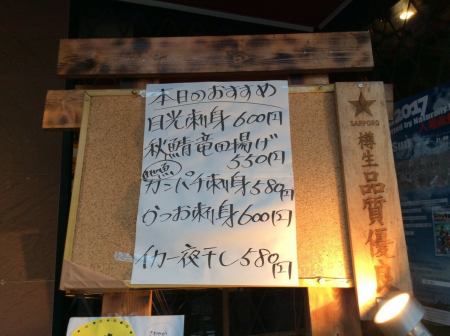 本日のおすすめ
目光刺身600円
秋鯖竜田揚げ
550円
カンパチ刺身580円
かつお刺身600円
イカ一夜干し580円
SAPPORO
樽生品質優良
2017